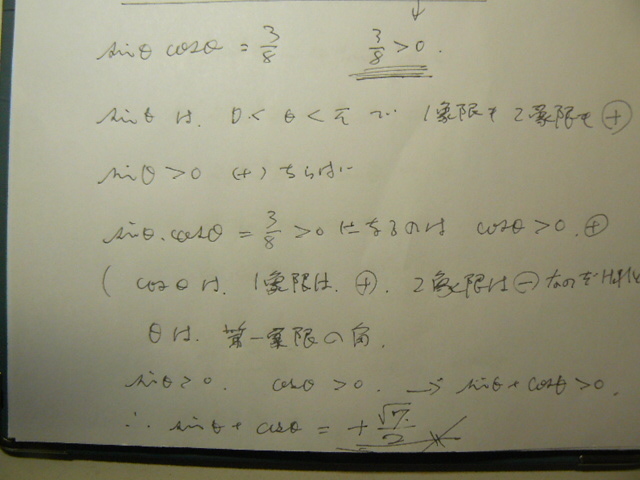 sinθ cosθ = 3/8 3/8 > 0.
sinθ は. 0 < θ < π で 1象限も 2象限も ⊕
sinθ > 0 (+) ならば
sinθ・cosθ = 3/8 > 0 になるのは cosθ > 0. ⊕
( cosθ は. 1象限は. ⊕. 2象限は ⊖ なので
θは. 第一象限の角.
sinθ > 0. cosθ > 0. → sinθ + cosθ > 0.
∴ sinθ + cosθ = + √7/2